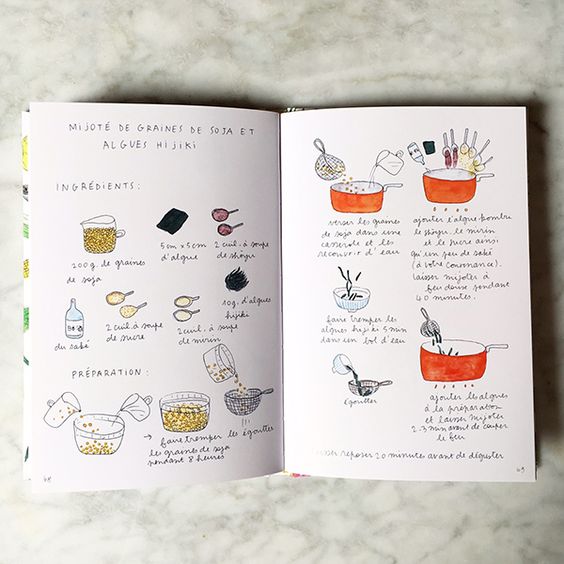 MIJOTÉ DE GRAINES DE SOJA ET
ALGUES HIJIKI
INGRÉDIENTS :
200 g. de graines
de soja
5cm x 5cm
d'algue
2 cuil. à soupe
de shōyu
du saké
2 cuil. à soupe
de sucre
2 cuil. à soupe
de mirin
10g. d'algues
hijiki
PRÉPARATION :
→ faire tremper
les graines de soja
pendant 8 heures
les égoutter
68
verser les graines
de soja dans une
casserole et les
recouvrir d'eau
ajouter l'algue kombu
le shōyu, le mirin
et le sucre ainsi
qu'un peu de saké
(à votre convenance).
laisser mijoter à
feu doux pendant
40 minutes.
faire tremper les
algues hijiki 5 min
dans un bol d'eau
égoutter
ajouter les algues
à la préparation
et laisser mijoter
2-3 min avant de couper
le feu
laisser reposer 20 minutes avant de déguster
69